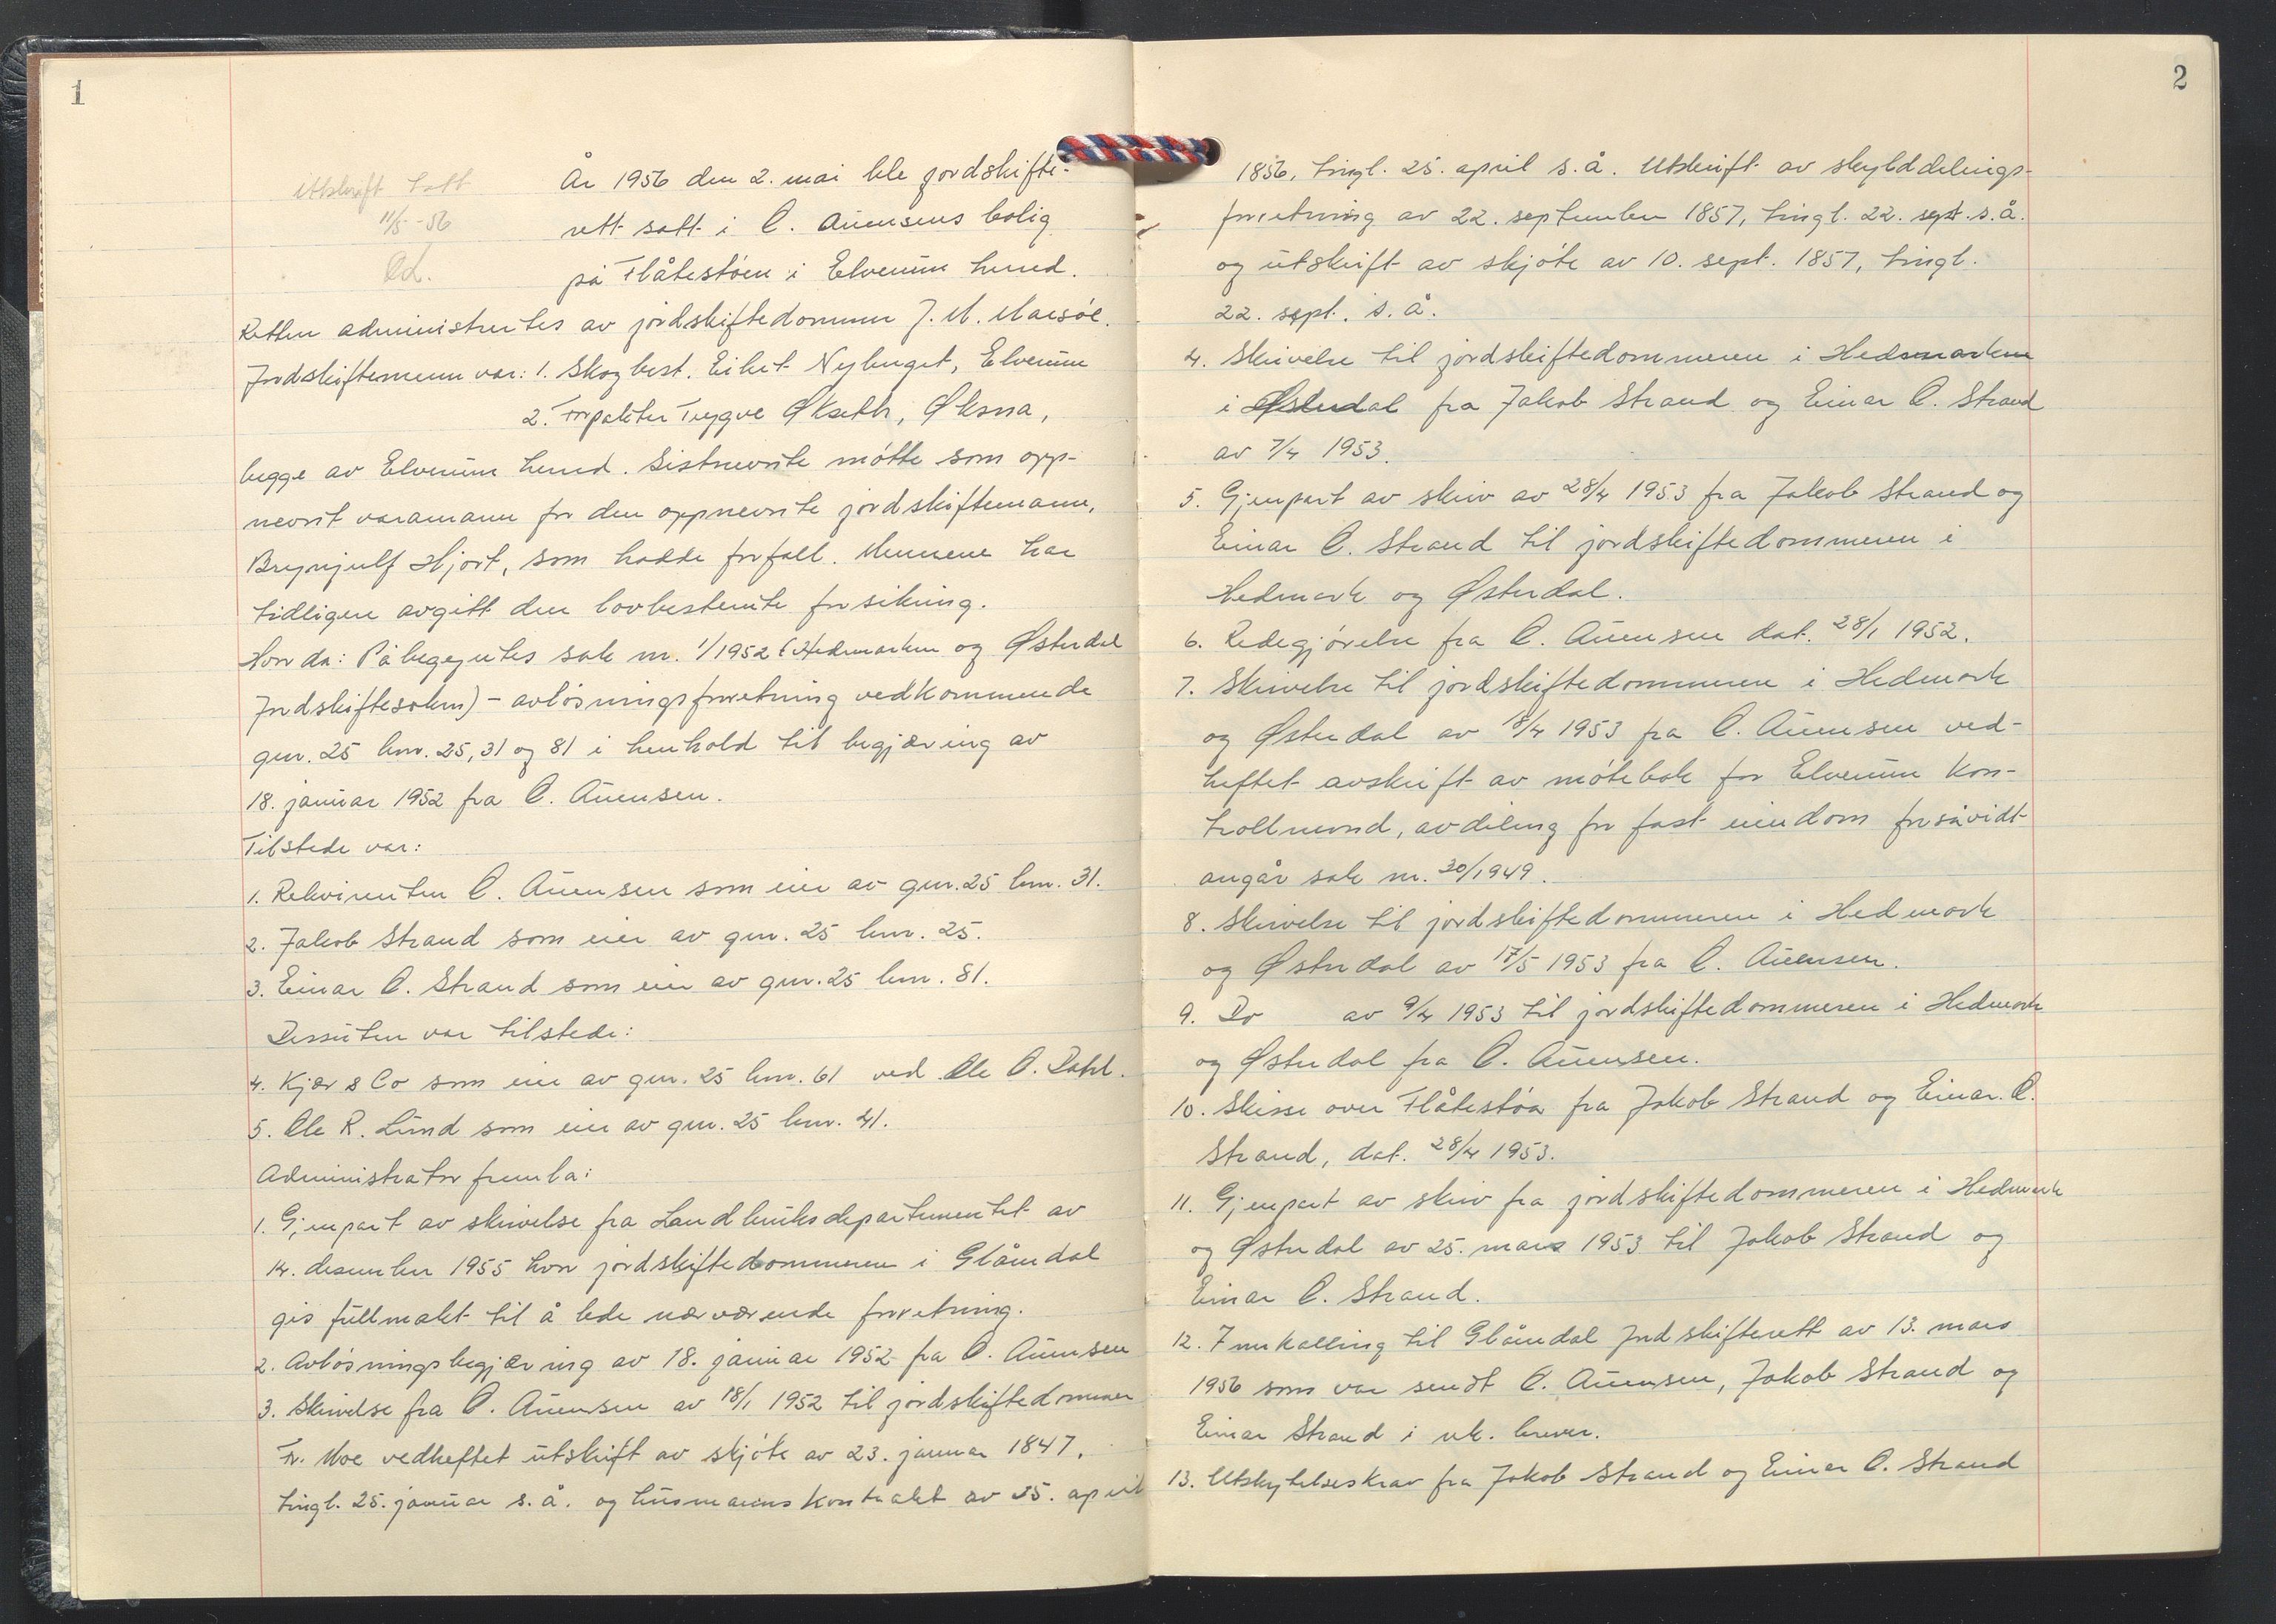 1
Utskrift tatt
11/5-56
Ol.
År 1956 den 2. mai ble jordskifte-
rett satt i O. Auensens bolig
på Flåtestøen i Elverum herred.
Retten administrertes av jordskiftedommer J. M. Marsøe.
Jordskiftemenn var: 1. Skogbest. Eilert Nyhuget, Elverum
2. Forpakter Trygve Økseth, Øksna,
begge av Elverum herred. Sistnevnte møtte som opp-
nevnt varamann for den oppnevnte jordskiftemann,
Brynjulf Hjort, som hadde forfall. Mennene har
tidligere avgitt den lovbestemte forsikring.
Hvor da: Påbegyntes sak nr. 1/1952 (Hedmarken og Østerdal
Jordskiftesokn) - avløsningsforretning vedkommende
gnr. 25 bnr. 25, 31 og 81 i henhold til begjæring av
18. januar 1952 fra O. Auensen.
Tilstede var:
1. Rekvirenten O. Auensen som eier av gnr. 25 bnr. 31.
2. Jakob Strand som eier av gnr. 25 bnr. 25.
3. Einar O. Strand som eier av gnr. 25 bnr. 81.
Dessuten var tilstede:
4. Kjær & Co som eier av gnr. 25 bnr. 61 ved Ole O. Dahl.
5. Ole R. Lund som eier av gnr. 25 bnr. 41.
Administrator fremla:
1. Gjenpart av skrivelse fra Landbruksdepartementet av
14. desember 1955 hvor jordskiftedommeren i Glåmdal
gis fullmakt til å lede nærværende forretning.
2. Avløsningsbegjæring av 18. januar 1952 fra O. Auensen
3. Skrivelse fra O. Auensen av 18/1 1952 til jordskiftedommer
Fr. Moe vedheftet utskrift av skjøte av 23. januar 1847,
tingl. 25. januar s.å. og husmannskontrakt av 25. april
2
1856, tingl. 25. april s.å. Utskrift av skylddelings-
forretning av 22. september 1857, tingl. 22. sept. s.å.
og utskrift av skjøte av 10. sept. 1857, tingl.
22. sept. s.å.
4. Skrivelse til jordskiftedommeren i Hedemarken
i Østerdal fra Jakob Strand og Einar O. Strand
av 7/4 1953.
5. Gjenpart av skriv av 28/4 1953 fra Jakob Strand og
Einar O. Strand til jordskiftedommeren i
Hedmark og Østerdal.
6. Redegjørelse fra O. Auensen dat. 28/1 1952.
7. Skrivelse til jordskiftedommeren i Hedmark
og Østerdal av 18/4 1953 fra O. Auensen ved-
heftet avskrift av møtebok for Elverum kon-
trollnevnd, avdeling for fast eiendom forsåvidt
angår sak nr. 30/1949.
8. Skrivelse til jordskiftedommeren i Hedmark
og Østerdal av 17/5 1953 fra O. Auensen.
9. Do av 9/4 1953 til jordskiftedommeren i Hedmark
og Østerdal fra O. Auensen.
10. Skisse over Flåtestøa fra Jakob Strand og Einar O.
Strand, dat. 28/4 1953.
11. Gjenpart av skriv fra jordskiftedommeren i Hedmark
og Østerdal av 25. mars 1953 til Jakob Strand og
Einar O. Strand.
12. Innkalling til Glåmdal Jordskifterett av 13. mars
1956 som var sendt O. Auensen, Jakob Strand og
Einar Strand i rek. brever.
13. Utskytelseskrav fra Jakob Strand og Einar O. Strand